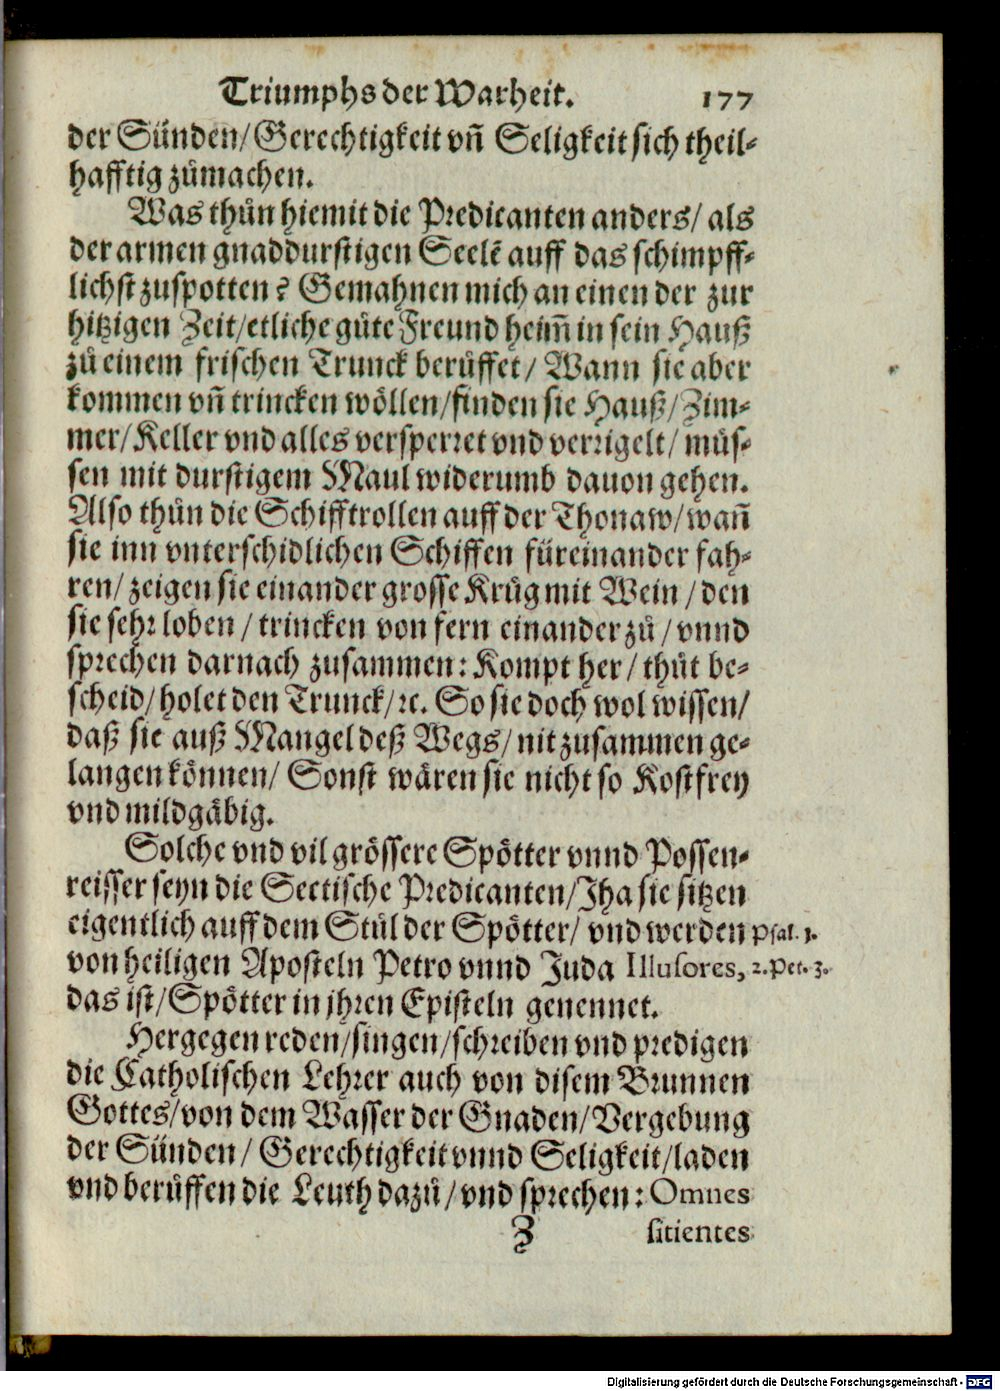 Triumphs der Warheit. 177
der Sünden/Gerechtigkeit vñ Seligkeit sich theil-
hafftig zůmachen.
Was thůn hiemit die Predicanten anders/ als
der armen gnaddurstigen Seelẽ auff das schimpff-
lichst zuspotten? Gemahnen mich an einen der zur
hitzigen Zeit/etliche gůte Freund heim̃ in sein Hauß
zů einem frischen Trunck berůffet/ Wann sie aber
kommen vñ trincken wöllen/finden sie Hauß/Zim-
mer/Keller vnd alles versperret vnd verrigelt/ müs-
sen mit durstigem Maul widerumb dauon gehen.
Also thůn die Schifftrollen auff der Thonaw/wañ
sie inn vnterschidlichen Schiffen füreinander fah-
ren/ zeigen sie einander grosse Krůg mit Wein /den
sie sehr loben / trincken von fern einander zů / vnnd
sprechen darnach zusammen: Kompt her/ thůt be-
scheid/holet den Trunck/ꝛc. So sie doch wol wissen/
daß sie auß Mangel deß Wegs/ nit zusammen ge-
langen können/ Sonst wären sie nicht so Kostfrey
vnd mildgäbig.
Solche vnd vil grössere Spötter vnnd Possen-
reisser seyn die Sectische Predicanten/Jha sie sitzen
eigentlich auff dem Stůl der Spötter/ vnd werden Psal. 1.
von heiligen Aposteln Petro vnnd Juda Illusores, 2. Pet. 3.
das ist/Spötter in jhren Episteln genennet.
Hergegen reden/singen/schreiben vnd predigen
die Catholischen Lehrer auch von disem Brunnen
Gottes/von dem Wasser der Gnaden/Vergebung
der Sünden/ Gerechtigkeit vnnd Seligkeit/laden
vnd berůffen die Leuth dazů/vnd sprechen: Omnes
Z sitientes
Digitalisierung gefördert durch die Deutsche Forschungsgemeinschaft - DFG